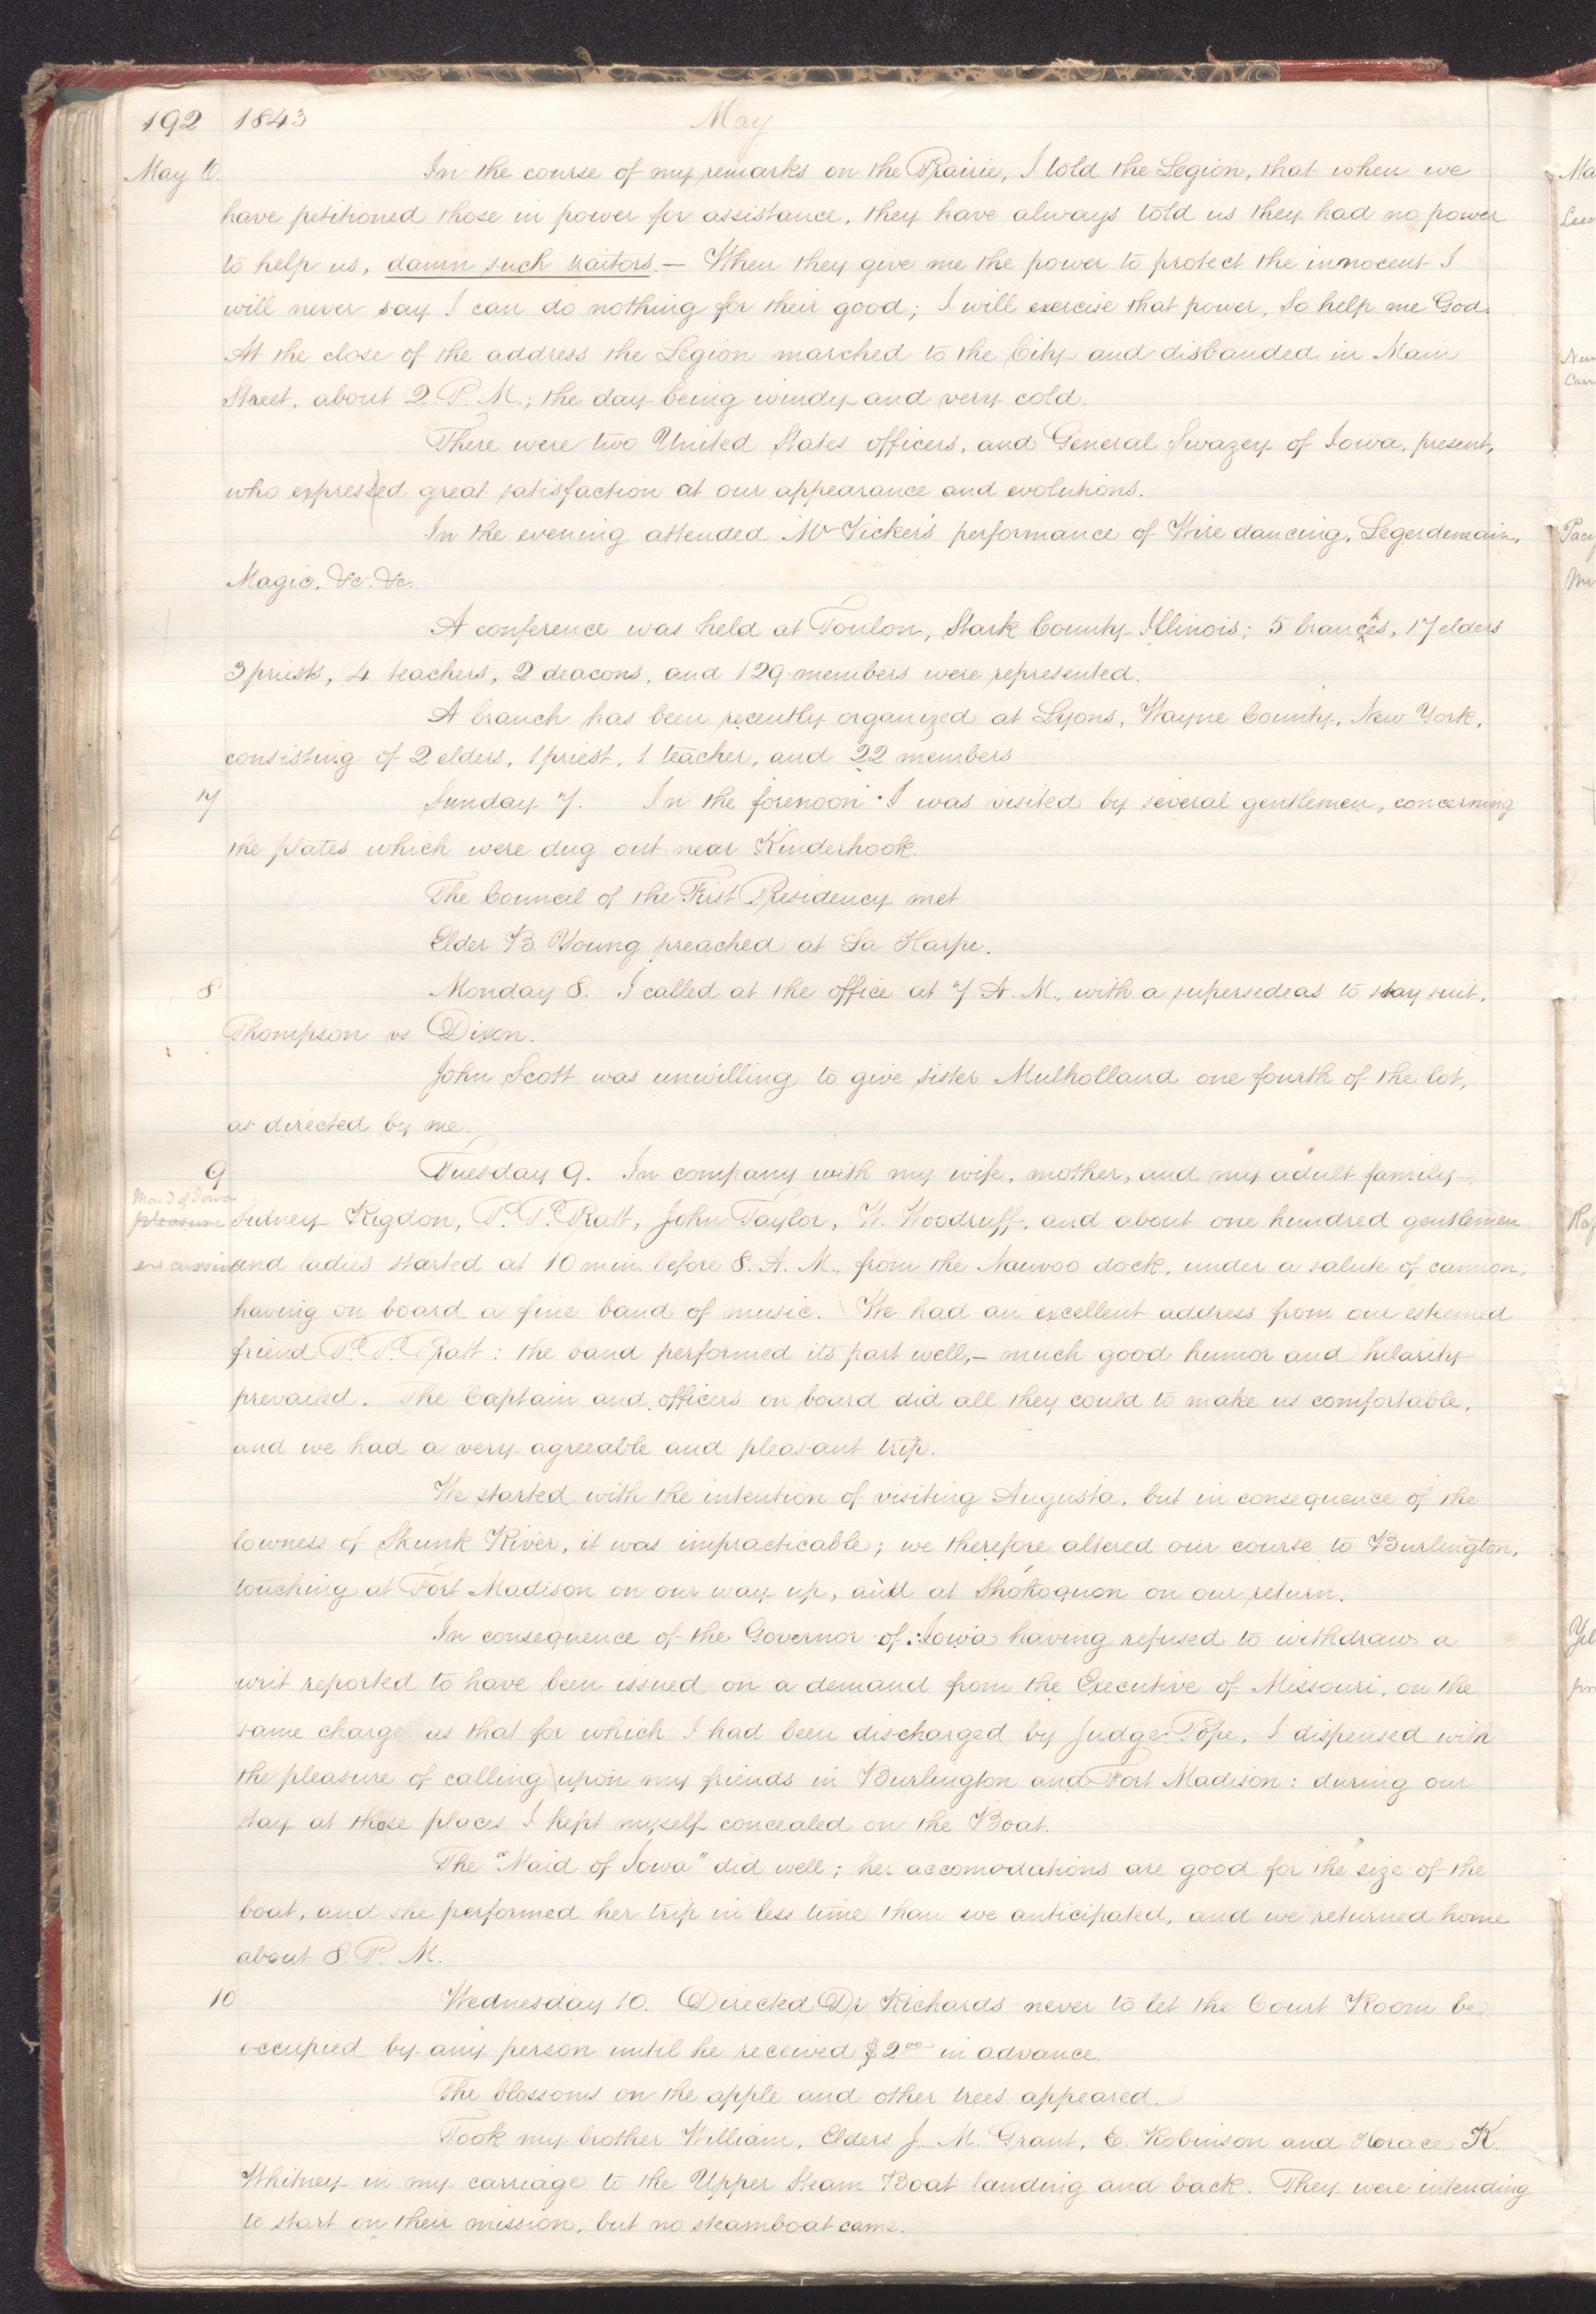 192 1843 May
May 6. In the course of my remarks on the Prairie, I told the Legion, that when we
have petitioned those in power for assistance, they have always told us they had no power
to help us, damn such traitors. — When they give me the power to protect the innocent I
will never say I can do nothing for their good; I will exercise that power, So help me God.
At the close of the address the Legion marched to the City and disbanded in Main
Street, about 2 P. M.; the day being windy and very cold.
There were two United States officers, and General Swazey of Iowa, present,
who expressed great satisfaction at our appearance and evolutions.
In the evening attended Mr Vicker's performance of Wire dancing, Legerdemain,
Magic, &c. &c.
A conference was held at Toulon, Stark County Illinois; 5 branches, 17 elders
3 priests, 4 teachers, 2 deacons, and 129 members were represented.
A branch has been recently organized at Lyons, Wayne County, New York,
consisting of 2 elders, 1 priest, 1 teacher, and 22 members
7 Sunday 7. In the forenoon I was visited by several gentlemen, concerning
the plates which were dug out near Kinderhook.
The Council of the First Presidency met
Elder B. Young preached at La Harpe.
8 Monday 8. I called at the office at 7. A. M., with a supersedeas to stay suit,
Thompson vs Dixon.
John Scott was unwilling to give sister Mulholland one fourth of the lot,
as directed by me.
9 Tuesday 9. In company with my wife, mother, and my adult family,
Maid of Iowa
pleasure Sidney Rigdon, P. P. Pratt, John Taylor, W. Woodruff, and about one hundred gentlemen
excursion and ladies started at 10 min. before 8. A. M., from the Nauvoo dock, under a salute of cannon;
having on board a fine band of music. We had an excellent address from our esteemed
friend P. P. Pratt: the band performed its part well,— much good humor and hilarity
prevailed. The Captain and officers on board did all they could to make us comfortable,
and we had a very agreeable and pleasant trip.
We started with the intention of visiting Augusta, but in consequence of the
lowness of Skunk River, it was impracticable; we therefore altered our course to Burlington,
touching at Fort Madison on our way up, and at Shokoquon on our return.
In consequence of the Governor of Iowa having refused to withdraw a
writ reported to have been issued on a demand from the Executive of Missouri, on the
same charge as that for which I had been discharged by Judge Pope, I dispensed with
the pleasure of calling upon my friends in Burlington and Fort Madison: during our
stay at those places I kept myself concealed on the Boat.
The "Maid of Iowa" did well; her accomodations are good for the size of the
boat, and she performed her trip in less time than we anticipated, and we returned home
about 8. P. M.
10 Wednesday 10. Directed Dr Richards never to let the Court Room be
occupied by any person until he received $2.00 in advance.
The blossoms on the apple and other trees appeared.
Took my brother William, Elders J. M. Grant, E. Robinson and Horace K.
Whitney in my carriage to the Upper Steam Boat landing and back. They were intending
to start on their mission, but no steamboat came.